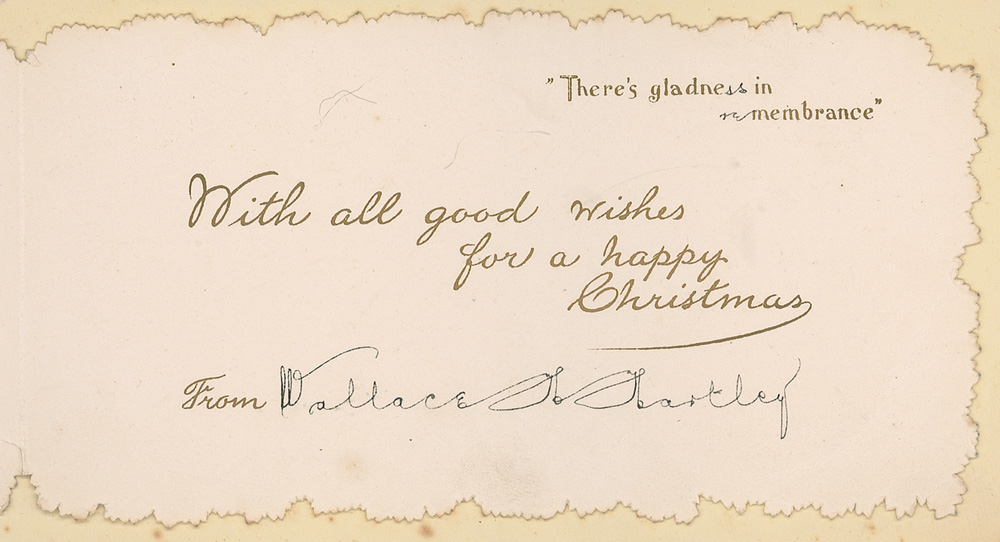 "There's gladness in
remembrance"
With all good wishes
for a happy
Christmas
From Wallace H Hartley